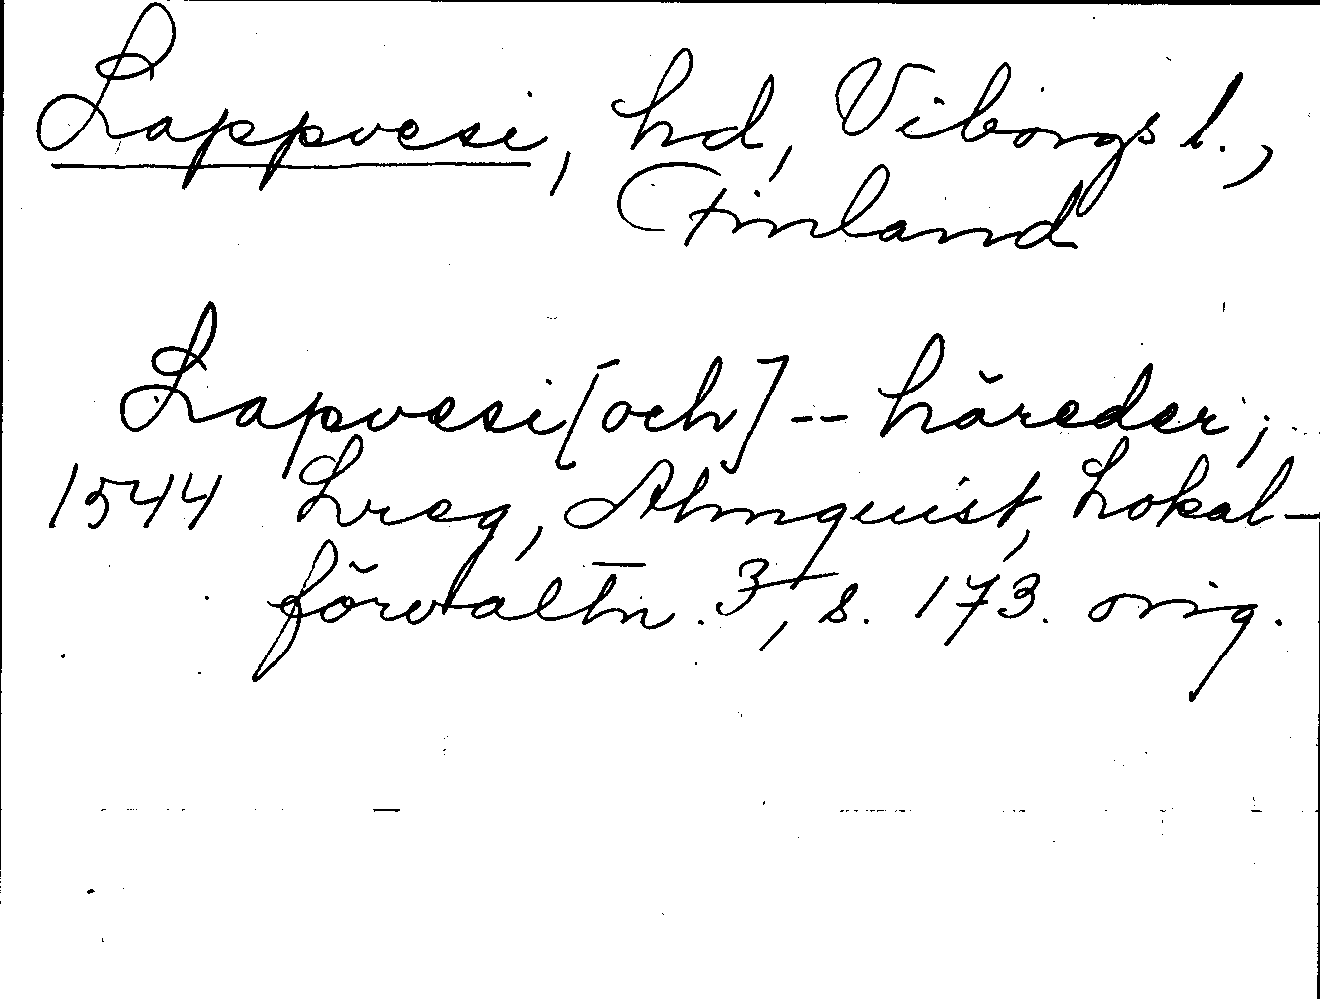 Lappvesi, hd, Viborgs l.,
Finland
Lapvesi [och] -- häreder;
1544 Lreg, Almquist, Lokal-
förvaltn. 3, s. 173. orig.